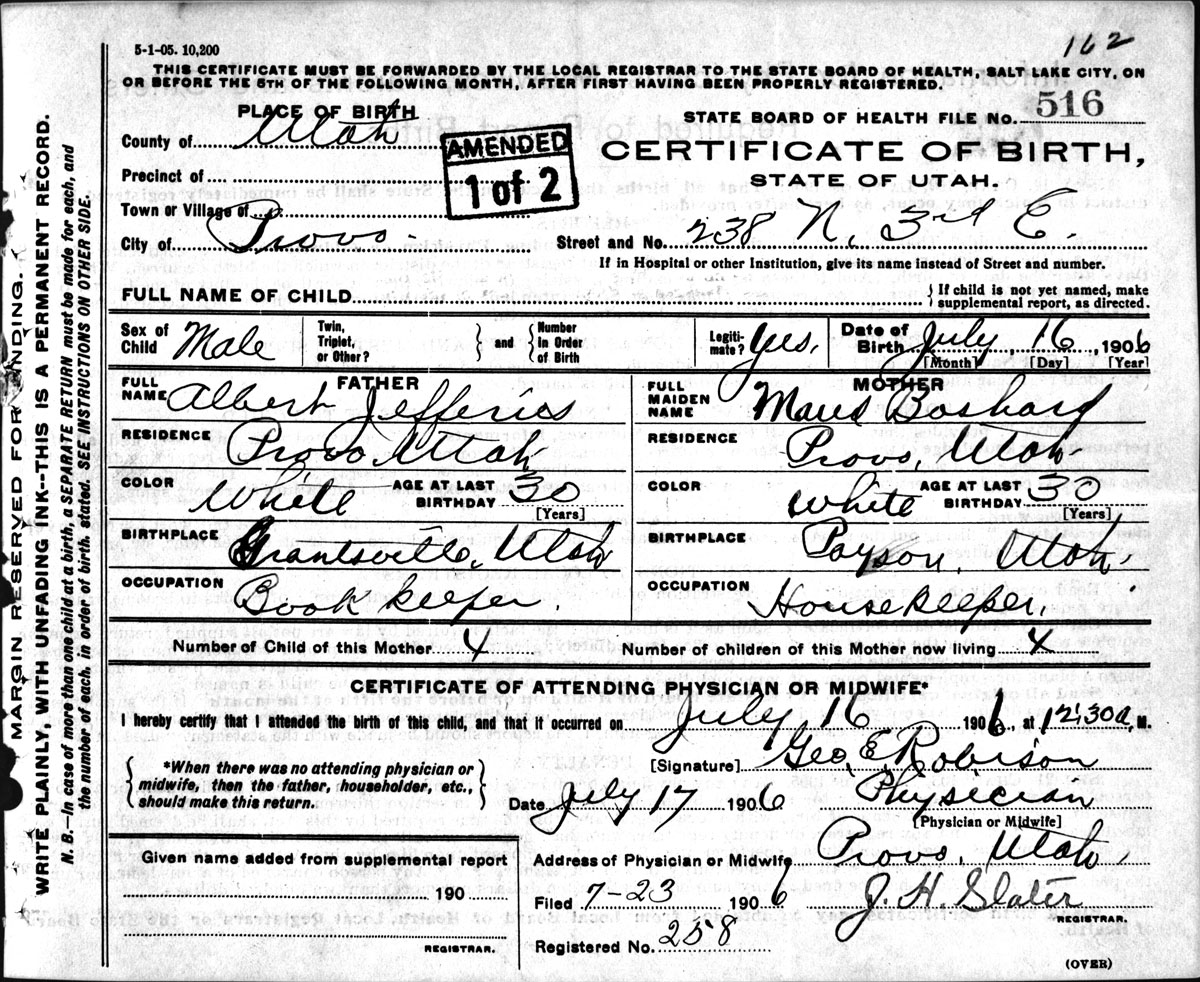 5-1-05. 10,200
162
THIS CERTIFICATE MUST BE FORWARDED BY THE LOCAL REGISTRAR TO THE STATE BOARD OF HEALTH, SALT LAKE CITY, ON
OR BEFORE THE 5TH OF THE FOLLOWING MONTH, AFTER FIRST HAVING BEEN PROPERLY REGISTERED.
PLACE OF BIRTH
County of Utah
Precinct of
Town or Village of
City of Provo.
AMENDED
1 of 2
STATE BOARD OF HEALTH FILE No. 516
CERTIFICATE OF BIRTH,
STATE OF UTAH.
Street and No. 238 N. 3rd E.
If in Hospital or other Institution, give its name instead of Street and number.
FULL NAME OF CHILD
If child is not yet named, make
supplemental report, as directed.
Sex of Child Male
Twin, Triplet, or Other?
and
Number in Order of Birth
Legiti-mate? yes.
Date of Birth July 16, 1906
[Month] [Day] [Year]
FATHER
FULL NAME Albert Jefferies
RESIDENCE Provo, Utah
COLOR White AGE AT LAST BIRTHDAY 30
[Years]
BIRTHPLACE Grantsville, Utah
OCCUPATION Book keeper.
MOTHER
FULL MAIDEN NAME Maud Boshard
RESIDENCE Provo, Utah
COLOR White AGE AT LAST BIRTHDAY 30
[Years]
BIRTHPLACE Payson, Utah.
OCCUPATION Housekeeper.
Number of Child of this Mother 4 Number of children of this Mother now living 4
CERTIFICATE OF ATTENDING PHYSICIAN OR MIDWIFE*
I hereby certify that I attended the birth of this child, and that it occurred on July 16 1906, at 12:30 a. M.
*When there was no attending physician or
midwife, then the father, householder, etc.,
should make this return.
[Signature] Geo. E. Robison
Date July 17 1906 Physician
[Physician or Midwife]
Given name added from supplemental report
190
REGISTRAR.
Address of Physician or Midwife Provo, Utah.
Filed 7-23 1906 J. H. Slater
REGISTRAR.
Registered No. 258
(OVER)
MARGIN RESERVED FOR BINDING.
WRITE PLAINLY, WITH UNFADING INK--THIS IS A PERMANENT RECORD.
N. B.—In case of more than one child at a birth, a SEPARATE RETURN must be made for each, and
the number of each, in order of birth, stated. SEE INSTRUCTIONS ON OTHER SIDE.